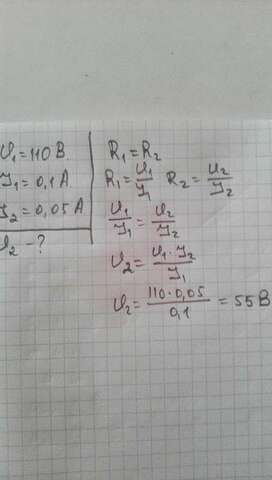 U₁=110 В
I₁=0,1 А
I₂=0,05 А
U₂ - ?
R₁=R₂
R₁=U₁/I₁ R₂=U₂/I₂
U₁/I₁=U₂/I₂
U₂=U₁·I₂/I₁
U₂=110·0,05/0,1=55 В